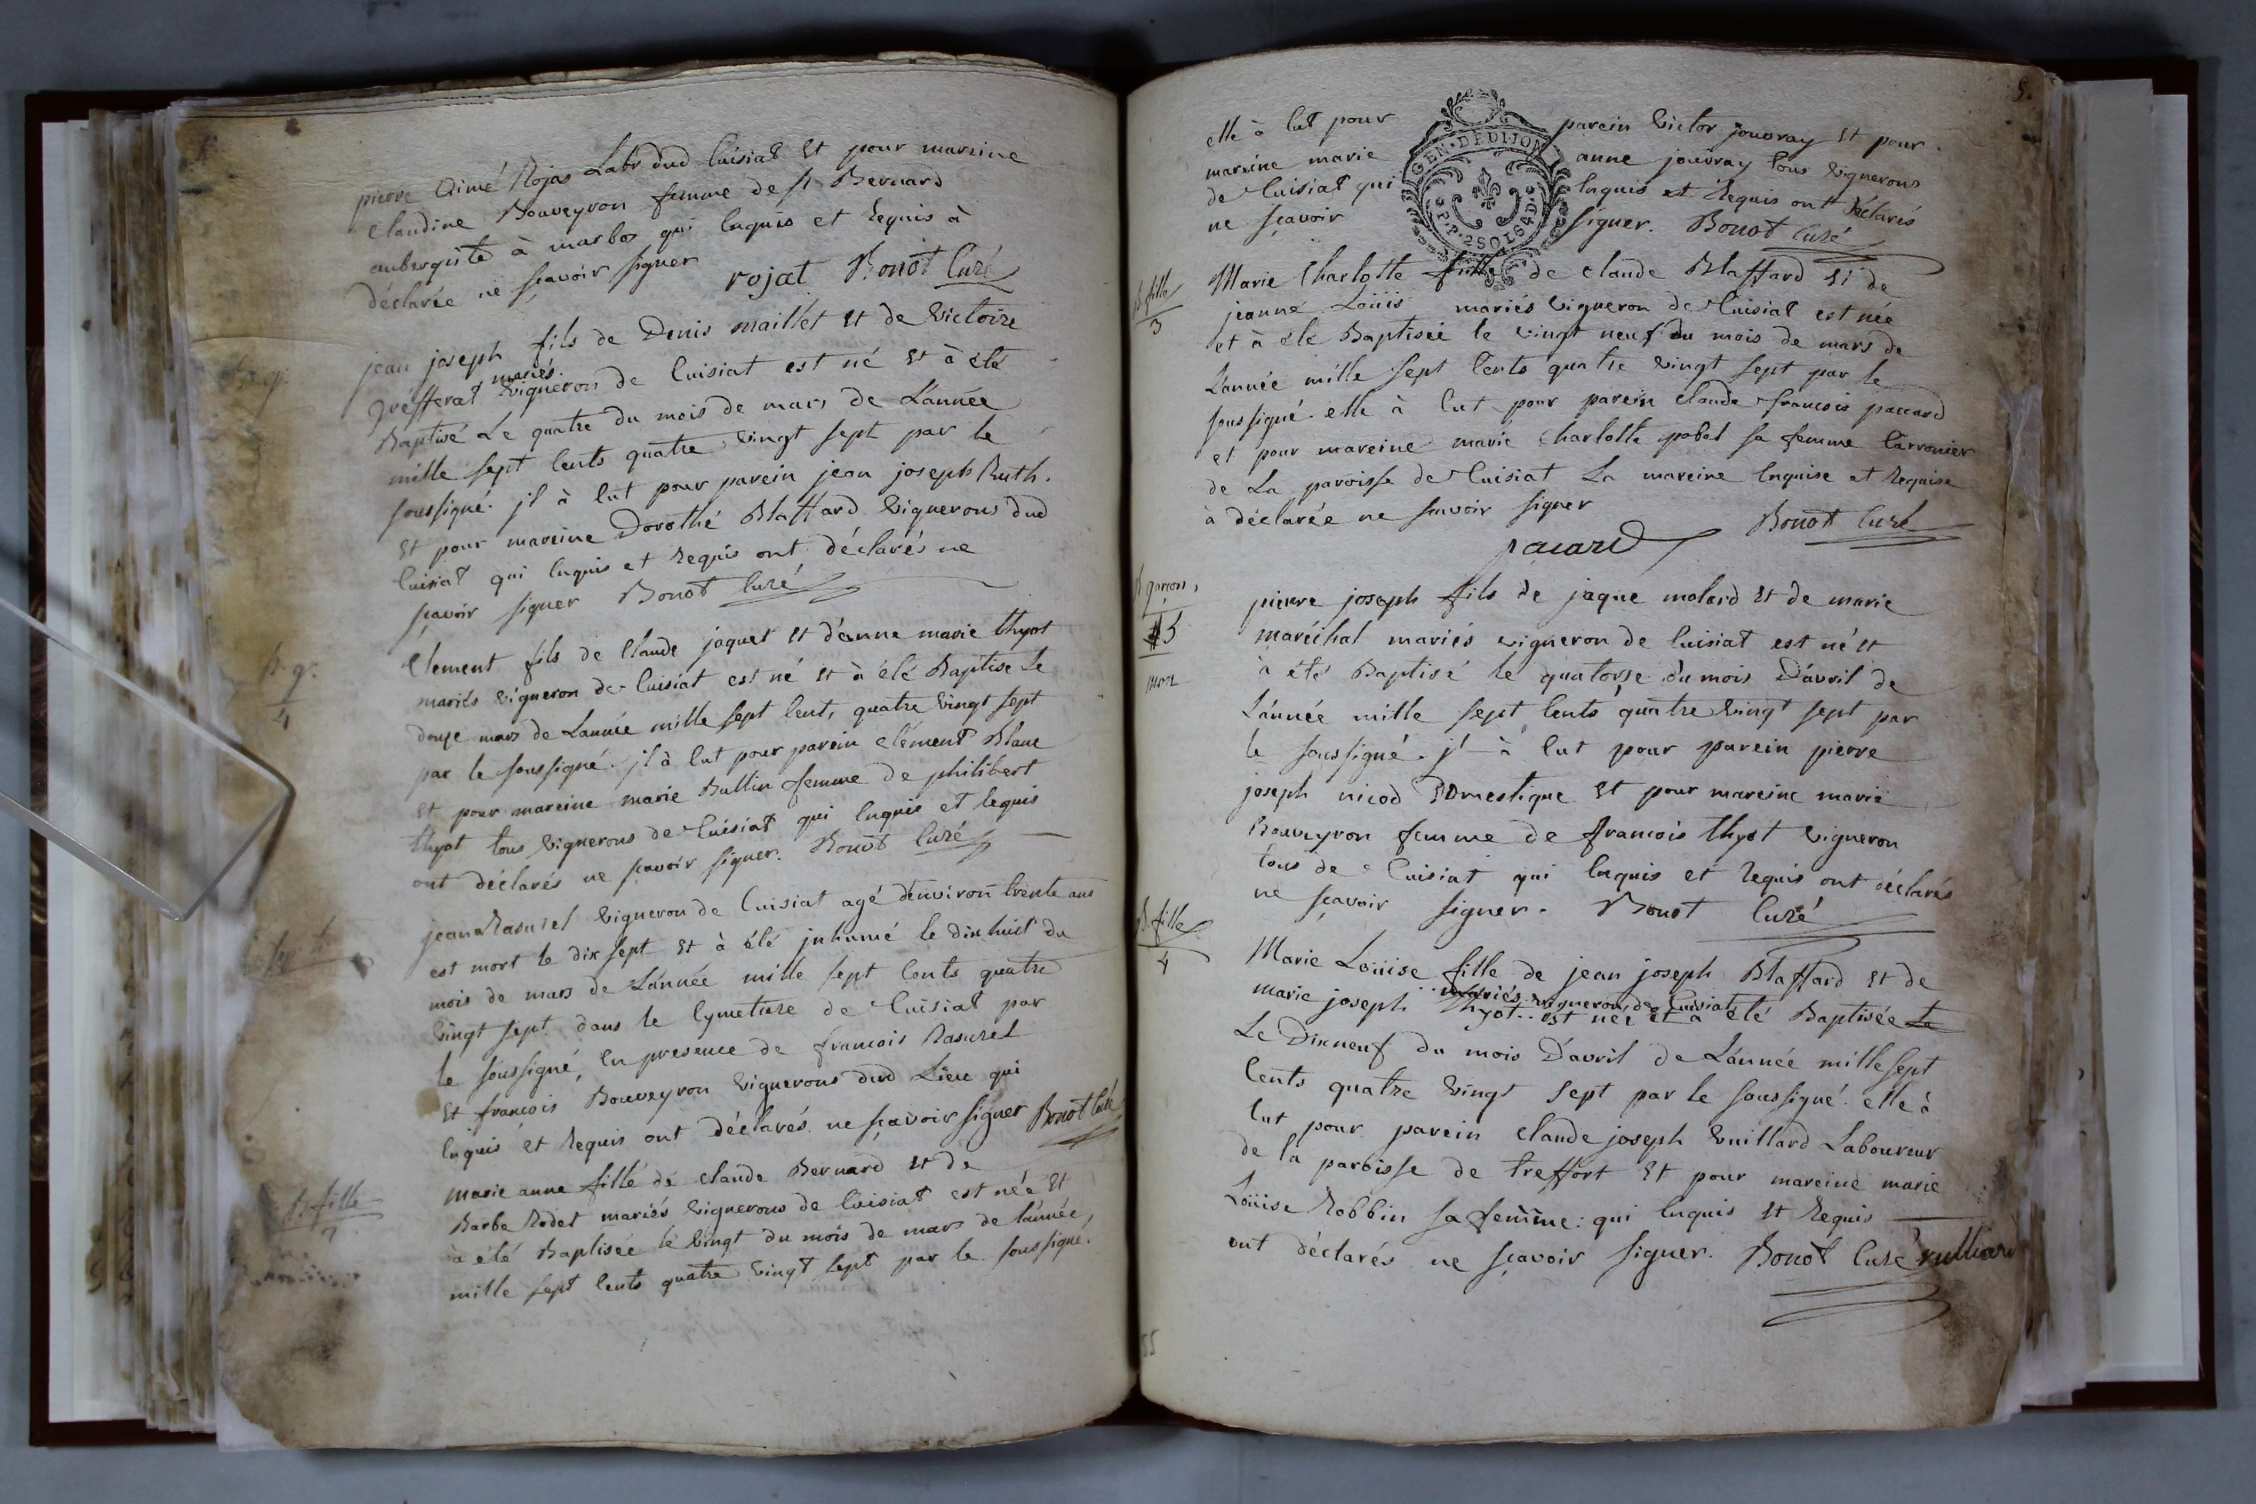 pierre Aimé Rojas Labr dud Cuisiat et pour mareine
Claudine Bouveyron femme de st Bernard
aubergiste à marbos qui Enquis et Requis à
déclarée ne sçavoir signer
rojat Bonot Curé
jean joseph fils de Denis maillet et de Victoire
mariés
grefferat Vigneron de Cuisiat est né et à été
Baptisé Le quatre du mois de mars de L'année
mille sept Cents quatre vingt sept par le
soussigné. jl à Eut pour parein jean joseph Ruth.
et pour mareine Dorothé Blaffard Vignerons dud
Cuisiat qui Enquis et Requis ont déclarés ne
sçavoir signer Bonot Curé
b. g.
4
Clement fils de Claude jaquet et d'anne marie thyot
mariés vigneron de Cuisiat est né et à été Baptise Le
douze mars de L'année mille sept Cent, quatre vingt sept
par le soussigné. jl à Eut pour parein Clément Blanc
et pour mareine marie Bullin femme de philibert
thyot tous Vignerons de Cuisiat qui Enquis et Requis
ont déclarés ne sçavoir signer. Bonot Curé
jean Rasurel Vigneron de Cuisiat agé d'environ trente ans
est mort le dix sept et à été jnhumé le dix huit du
mois de mars de L'année mille sept Cents quatre
vingt sept dans le Cymetiere de Cuisiat par
le soussigné, En presence de francois Rasurel
et francois Bouveyron Vignerons dud Lieu qui
Enquis et Requis ont déclarés ne sçavoir signer Bonot Curé
B. fille
marie anne fille de Claude Bernard et de
Barbe Rodet mariés Vignerons de Cuisiat est née et
à été Baptisée le Vingt du mois de mars de L'année,
mille sept Cents quatre Vingt sept par le soussigné.
5.
elle à Eut pour parein Victor jouvray et pour
mareine marie anne jouvray tous Vignerons
de Cuisiat qui Enquis et Requis ont déclarés
ne sçavoir signer. Bonot Curé
GEN·DEDIJON
P.P. 2SOLS4D.
b. fille
3
Marie Charlotte fille de Claude Blaffard et de
jeanne Loüis mariés Vigneron de Cuisiat est née
et à été Baptisée le Vingt neuf du mois de mars de
L'année mille sept Cents quatre Vingt sept par le
soussigné. elle à Eut pour parein Claude francois paccard
et pour mareine marie Charlotte pobel sa femme Carronier
de La paroisse de Cuisiat La mareine Enquise et Requise
à déclarée ne sçavoir signer
pacard Bonot Curé
B garçon
5
mor
pierre joseph fils de jaque molard et de marie
maréchal mariés vigneron de Cuisiat est né et
à été Baptisé le quatorze du mois D'avril de
L'année mille sept Cents quatre Vingt sept par
le soussigné. jl à Eut pour parein pierre
joseph nicod Domestique et pour mareine marie
Bouveyron femme de francois thyot Vigneron
tous de Cuisiat qui Enquis et Requis ont déclarés
ne sçavoir signer. Bonot Curé
B. fille
4
Marie Loüise fille de jean joseph Blaffard et de
mariés vignerons de Cuisiat
marie joseph thyot est née et à été Baptisée Le
Le Dixneuf du mois D'avril de L'année mille sept
Cents quatre Vingt sept par le soussigné. elle à
Eut pour parein Claude joseph Vuillard Laboureur
de la paroisse de treffort et pour mareine marie
Loüise Robbin sa femme: qui Enquis et Requis
ont déclarés ne sçavoir signer. Bonot Curé vulliard
55